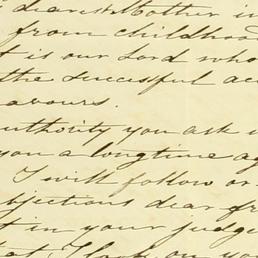 dearest Mother in
from childhood
t is our Lord who
the successful ac
avours.
uthority you ask
you a longtime ag
I will follow or
bjections dear fr
t in your judge
that I look on you